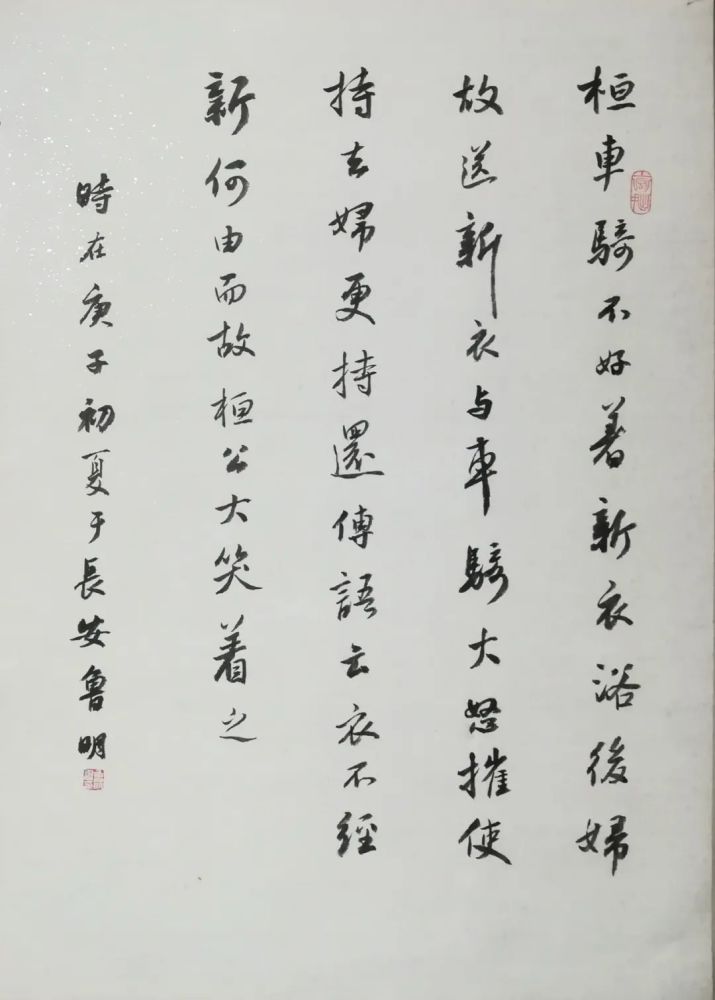 桓車騎不好著新衣浴後婦
故送新衣与車騎大怒摧使
持去婦更持還傳語云衣不經
新何由而故桓公大笑着之
時在庚子初夏于長安魯明